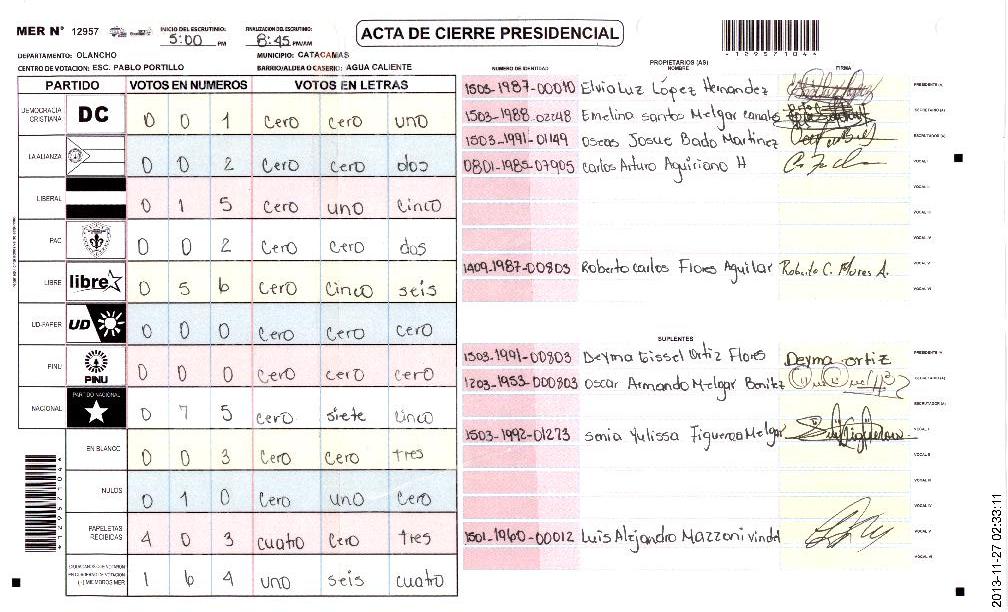 MER N° 12957
INICIO DEL ESCRUTINIO: 5:00 PM
FINALIZACION DEL ESCRUTINIO: 8:45 PM/AM
ACTA DE CIERRE PRESIDENCIAL
*12957104*
DEPARTAMENTO: OLANCHO MUNICIPIO: CATACAMAS
CENTRO DE VOTACION: ESC. PABLO PORTILLO BARRIO/ALDEA O CASERIO: AGUA CALIENTE
PARTIDO VOTOS EN NUMEROS VOTOS EN LETRAS
DEMOCRACIA CRISTIANA DC 0 0 1 cero cero uno
LA ALIANZA 0 0 2 cero cero dos
LIBERAL 0 1 5 cero uno cinco
PAC 0 0 2 cero cero dos
LIBRE libre 0 5 6 cero cinco seis
UD-FAPER UD 0 0 0 cero cero cero
PINU PINU 0 0 0 cero cero cero
NACIONAL PARTIDO NACIONAL 0 7 5 cero siete cinco
EN BLANCO 0 0 3 cero cero tres
NULOS 0 1 0 cero uno cero
PAPELETAS RECIBIDAS 4 0 3 cuatro cero tres
1 6 4 uno seis cuatro
*12957104*
PROPIETARIOS (AS)
NUMERO DE IDENTIDAD NOMBRE FIRMA
1503-1987-00040 Elvia Luz López Hernandez PRESIDENTE (A)
1503-1988-02248 Emelina santos Melgar canales SECRETARIO (A)
1503-1991-01149 Oscar Josue Bado Martinez ESCRUTADOR (A)
0801-1985-07905 carlos Arturo Aguiriano H VOCAL I
VOCAL II
VOCAL III
VOCAL IV
1409-1987-00803 Roberto carlos Flores Aguilar Roberto C. Flores A. VOCAL V
VOCAL VI
SUPLENTES
1503-1991-00803 Deyma Gissel Ortiz Flores Deyma ortiz PRESIDENTE (A)
1203-1953-000803 Oscar Armando Melgar Benitez SECRETARIO (A)
ESCRUTADOR (A)
1503-1992-01273 sonia Yulissa Figueroa Melgar VOCAL I
VOCAL II
VOCAL III
VOCAL IV
1501-1960-00012 Luis Alejandro Mazzoni vindel VOCAL V
VOCAL VI
2013-11-27 02:33:11